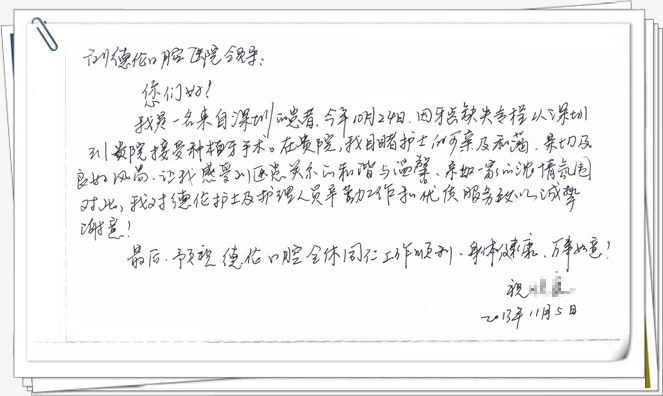 德伦口腔医院领导:
您们好!
我是一名来自深圳的患者,今年10月24日,因牙齿缺失专程从深圳
到贵院接受种植牙手术。在贵院,我目睹护士的可亲及和蔼、亲切及
良好风尚,让我感受到医患关系的和谐与温馨,亲如一家的浓情氛围
对此,我对德伦护士及护理人员辛勤工作和优质服务致以诚挚
谢意!
最后,预祝德伦口腔全体同仁工作顺利、身体健康、万事如意!
祝
2013年11月5日